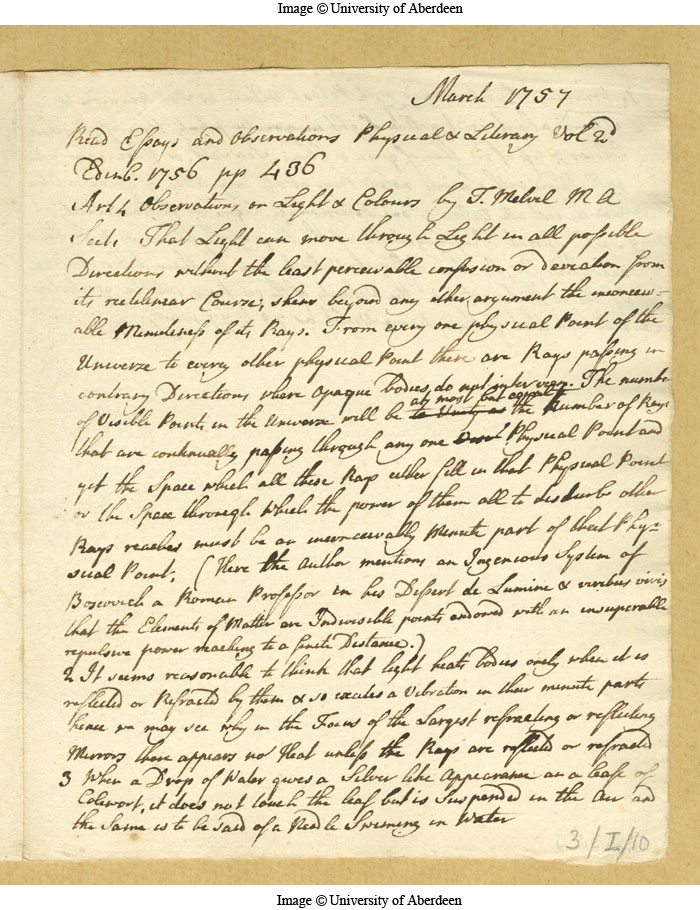 Image © University of Aberdeen
March 1757
Read Essays and Observations Physical & Literary Vol 2d
Edinb. 1756 pp 436
Art 4 Observations on Light & Colours by T. Melvil M A
Sect 1 That Light can move through Light in all possible
Directions without the least perceivable confusion or deviation from
its rectilinear Course, shews beyond any other argument the inconceiv-
able Minuteness of its Rays. From every one physical Point of the
Universe to every other physical Point there are Rays passing in
contrary Directions where opaque bodies do not interveen. The number
of Visible Points in the Universe will be to Unity as the Number of Rays
that are continually passing through any one Physical Point and
yet the Space which all these Rays either fill in that Physical Point
or the Space through which the power of them all to disturb other
Rays reaches must be an inconceivably Minute part of that Phy-
sical Point. (Here the Author mentions an Ingenious System of
Boscovich a Roman Professor in his Dissert de Lumine & viribus vivis
that the Elements of Matter are Indivisible points endowed with an insuperable
repulsive power reaching to a finite Distance.)
2 It seems reasonable to think that light heats bodies only when it is
reflected or Refracted by them & so excites a Vibration in their minute parts
hence we may see why in the Focus of the Largest refracting or reflecting
Mirrors there appears no Heat unless the Rays are reflected or refracted
3 When a Drop of Water gives a Silver like Appearance on a leaf of
Colewort, it does not touch the leaf but is Suspended in the Air and
the Same is to be said of a Needle Swiming in Water
3/I/10
Image © University of Aberdeen